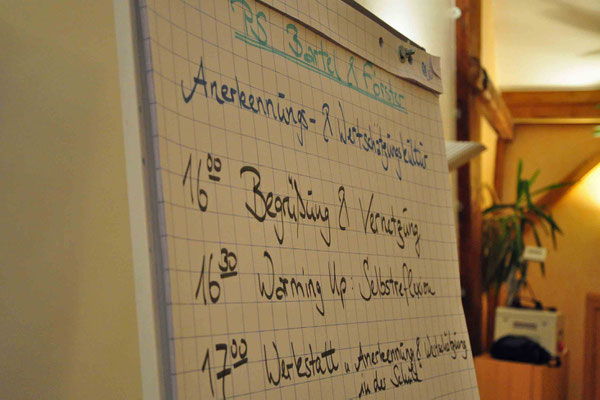 PS Bartel & Forster
Anerkennungs- & Wertschätzungskultur
16 00 Begrüßung & Vernetzung
16 30 Warming Up: Selbstreflexion
17 00 Werkstatt Anerkennung & Wertschätzung
in der Schule